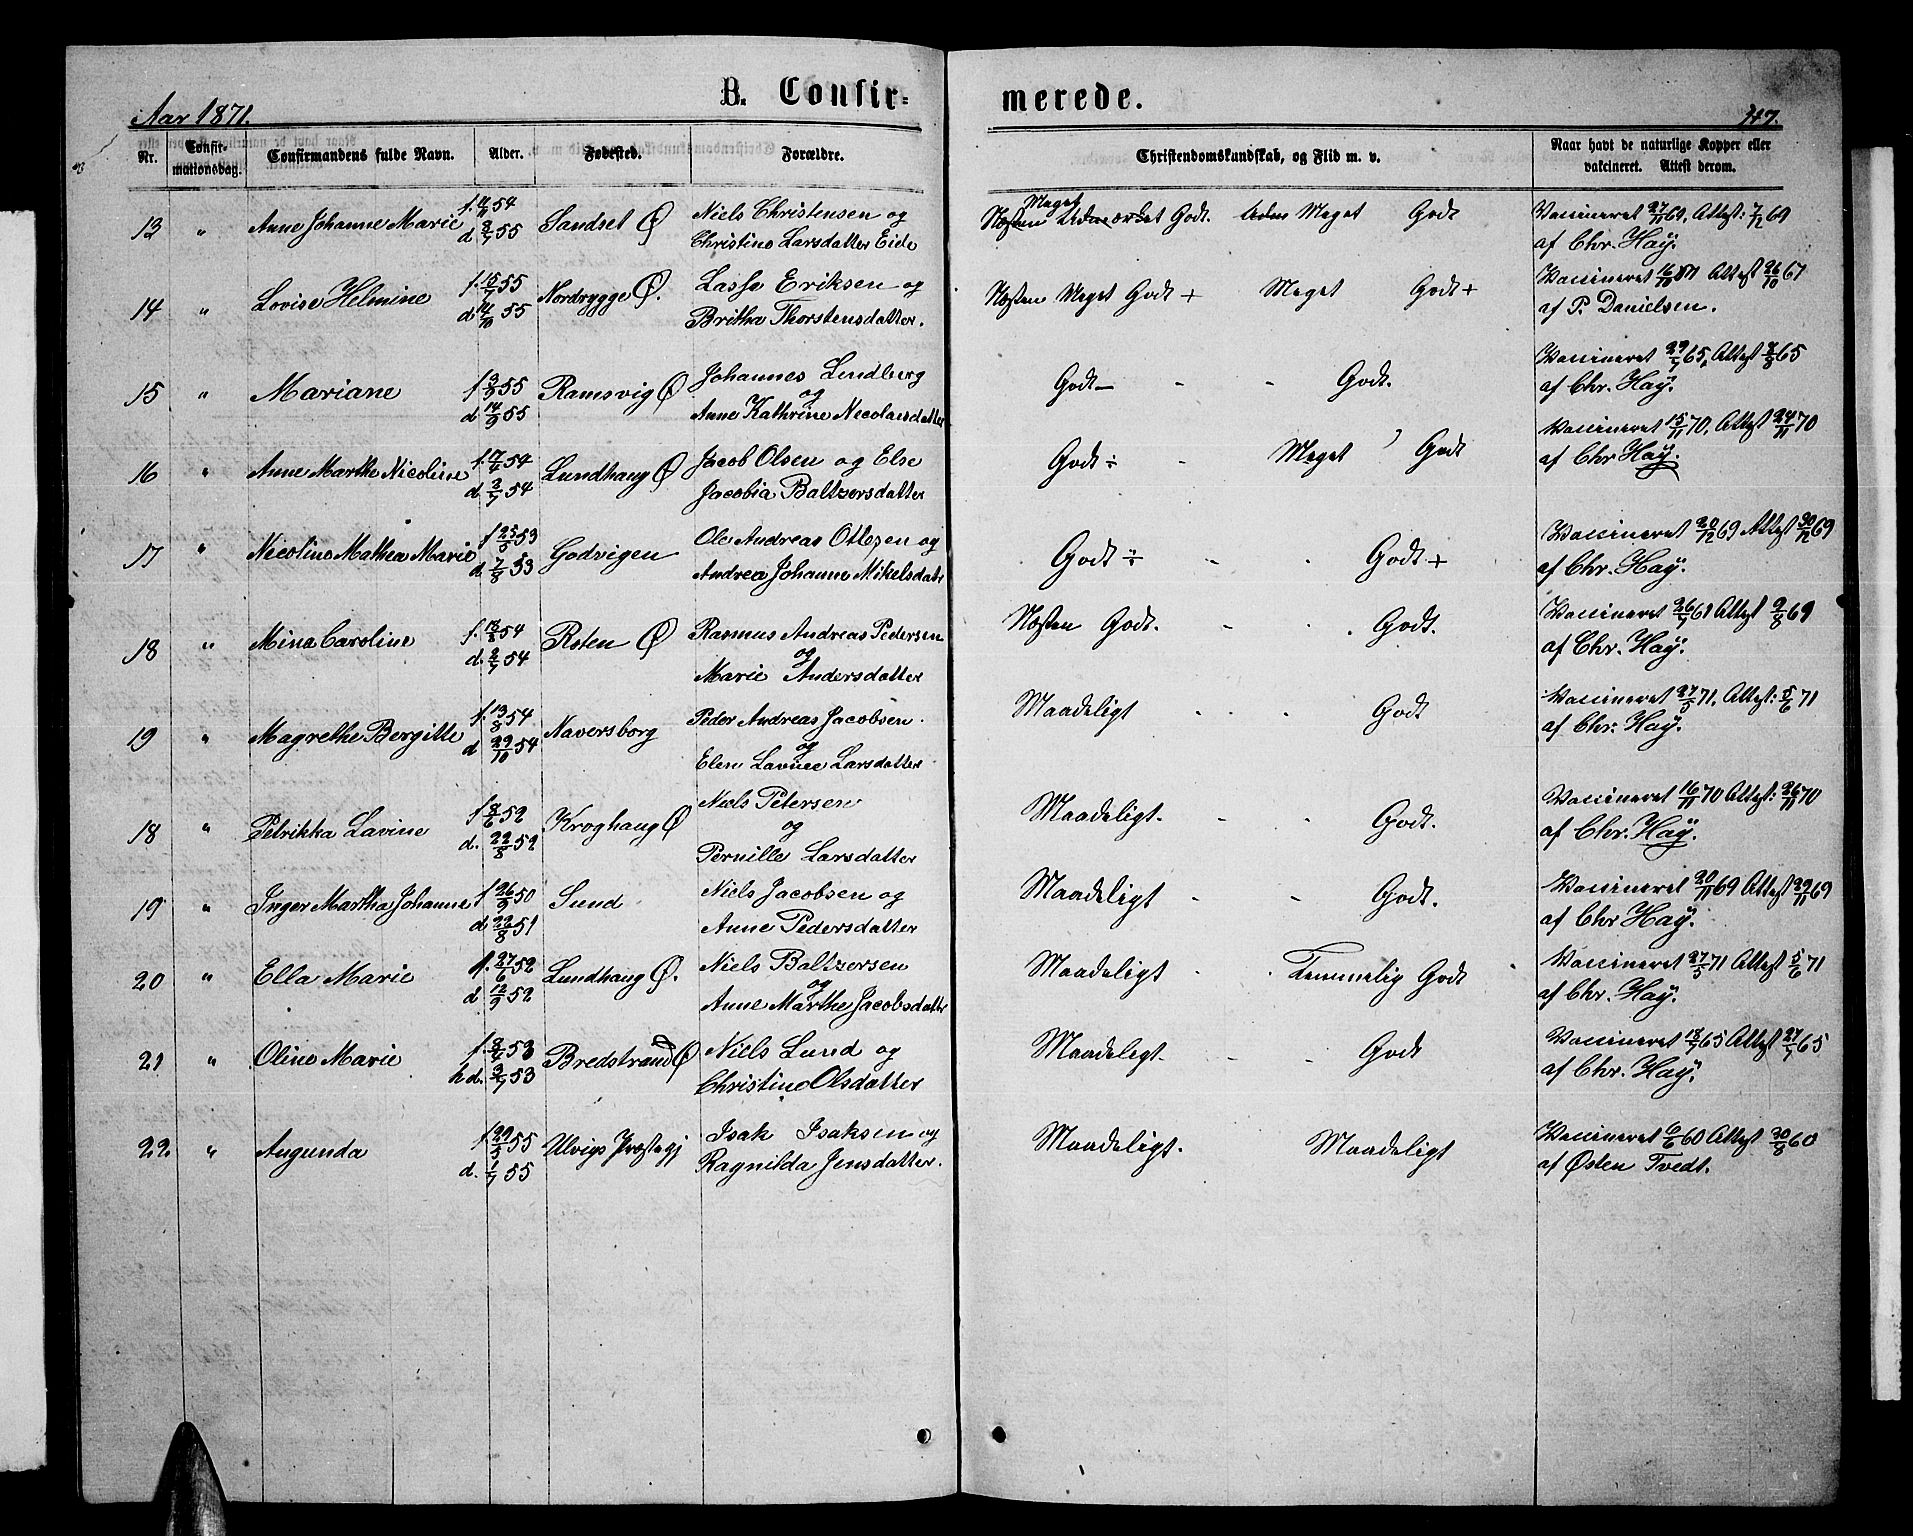 B. Confir= merede.
Aar 1871.
147.
Nr. Confir-mationsdag. Confirmandens fulde Navn. Alder. Fødested. Forældre. Christendomskundskab, og Flid m. v. Naar havt de naturlige Kopper eller vakcineret. Attest derom.
13 " Anne Johanne Marie Sandset Ø Niels Christensen og
Christine Larsdatter Eide
Meget Godt. Meget Godt Vaccineret 27/11 69, Attest: 7/12 69
af Chr. Haÿ.
14 " Lovise Helmine f. 15/7 55 d 14/10 55 Nordrygge Ø. Lasse Eriksen og
Britha Thorstensdatter.
Næsten Meget Godt + Meget Godt + Vaccineret Attest 26/10 67
af P. Danielsen.
15 " Mariane d 14/9 55 Ramsvig Ø Johannes Lindberg
og
Anne Kathrine Nicolaisdatter
Godt - - - Godt. Vaccineret 29/7 65, Attest 7/8 65
af Chr. Haÿ.
16 " Anne Marthe Nicoline f. 17/4 54 d. 2/7 54 Lundhaug Ø Jacob Olsen og Else
Jacobia Baltzersdatter
Godt ÷ - Meget Godt Vaccineret 15/11 70, Attest 24/11 70
af Chr Haÿ.
17 " Nicoline Mathea Marie f 25/5 53 d. 7/8 53 Godvigen Ole Andreas Ottesen og
Andrea Johanne Mikelsdatr
Godt ÷ - - Godt + Vaccineret 20/12 69 Attest 30/12 69
af Chr. Haÿ.
18 " Mina Caroline d. 2/7 54 Roten Ø Rasmus Andreas Pedersen
og
Marie Andersdatter
Næsten Godt. - - Godt. Vaccineret 26/7 61 Attest 9/8 69
af Chr. Haÿ.
19 " Magrethe Bergitte f. 13/8 54 d 29/10 54 Naversborg Peder Andreas Jacobsen
og
Elen Lavine Larsdatter
Maadeligt - - Godt Vaccineret 27/5 71, Attest: 5/6 71
af Chr. Haÿ.
18 " Petrikka Lavine f 8/6 52 d. 22/8 52 Kroghaug Ø Niels Petersen
og
Pernille Larsdatter
Maadeligt. - - Godt. Vaccineret 16/11 70 Attest: 26/11 70
af Chr. Haÿ.
19 " Inger Martha Johanne f 26/9 50 d 22/8 51 Sund Niels Jacobsen og
Anne Pedersdatter
Maadeligt - - Godt. Vaccineret 20/11 69 Attest 29/11 69
af Chr Haÿ.
20 " Ella Marie f. 27/6 52 d 12/9 52 Lundhaug Ø. Niels Baltzersen
og
Anne Marthe Jacobsdatter
Maadeligt - Temmelig Godt Vaccineret 27/5 71 Attest 5/6 71
af Chr. Haÿ.
21 " Oline Marie f. 2/4 53 hd. 3/7 53 Bredstrand Ø Niels Lund og
Christine Olsdatter
Maadeligt. - - Godt Vaccineret 18/7 65 Attest 27/7 65
af Chr. Haÿ.
22. " Angunda f. 29/5 55 d. 1/7 55 Ulvigs Præstegj Isak Isaksen og
Ragnilda Jensdatter.
Maadeligt. Maadeligt Vaccineret 6/6 60 Attest 30/8 60
af Østen Tvedt.